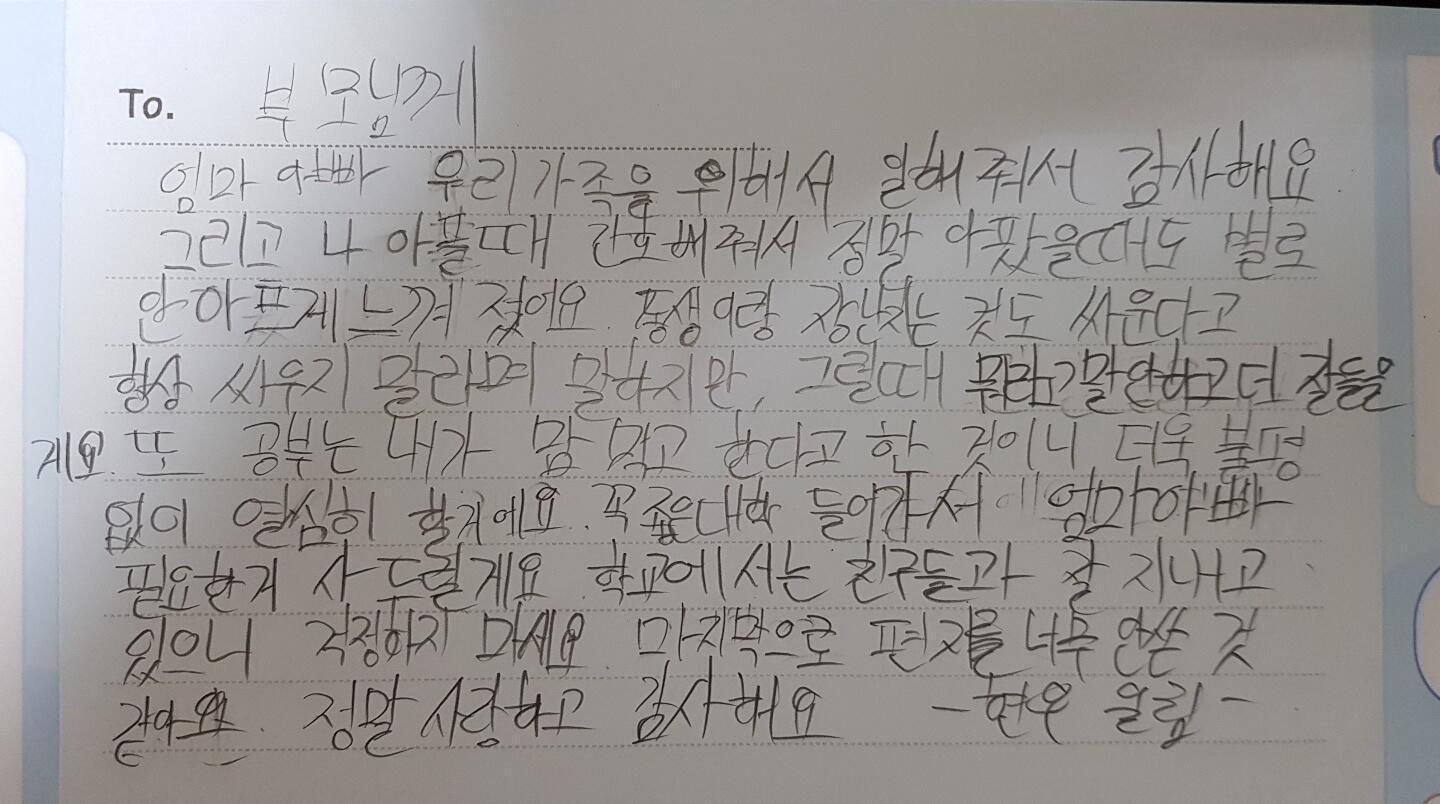 To. 부모님께
엄마 아빠 우리가족을 위해서 일해줘서 감사해요
그리고 나 아플때 간호해줘서 정말 아팠을때도 별로
안아프게 느껴졌어요. 동생이랑 장난치는 것도 싸운다고
항상 싸우지 말라며 말하지만, 그럴때 뭐라고말안하고더 잘들을
게요. 또 공부는 내가 맘 먹고 한다고 한 것이니 더욱 불평
없이 열심히 할거에요. 꼭 좋은대학 들어가서 엄마아빠
필요한거 사 드릴게요. 학교에서는 친구들과 잘 지내고
있으니 걱정하지 마세요. 마지막으로 편지를 너무 안쓴 것
같아요. 정말 사랑하고 감사해요 -현우 올림-